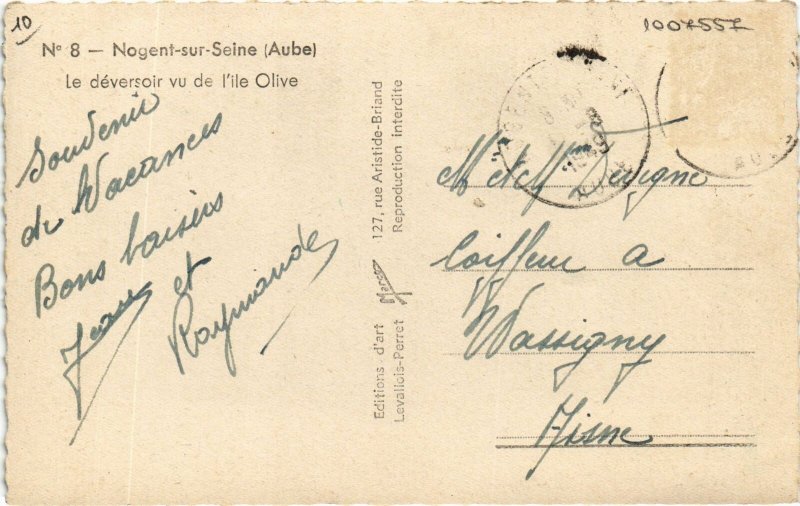 10
1007557
N° 8 — Nogent-sur-Seine (Aube)
Le déversoir vu de l'île Olive
Souvenir
de Vacances
Bons baisers
Jean et
Raymonde
Editions d'art
Levallois-Perret
127, rue Aristide-Briand
Reproduction interdite
M et M
Coiffeur a
Wassigny
Aisne